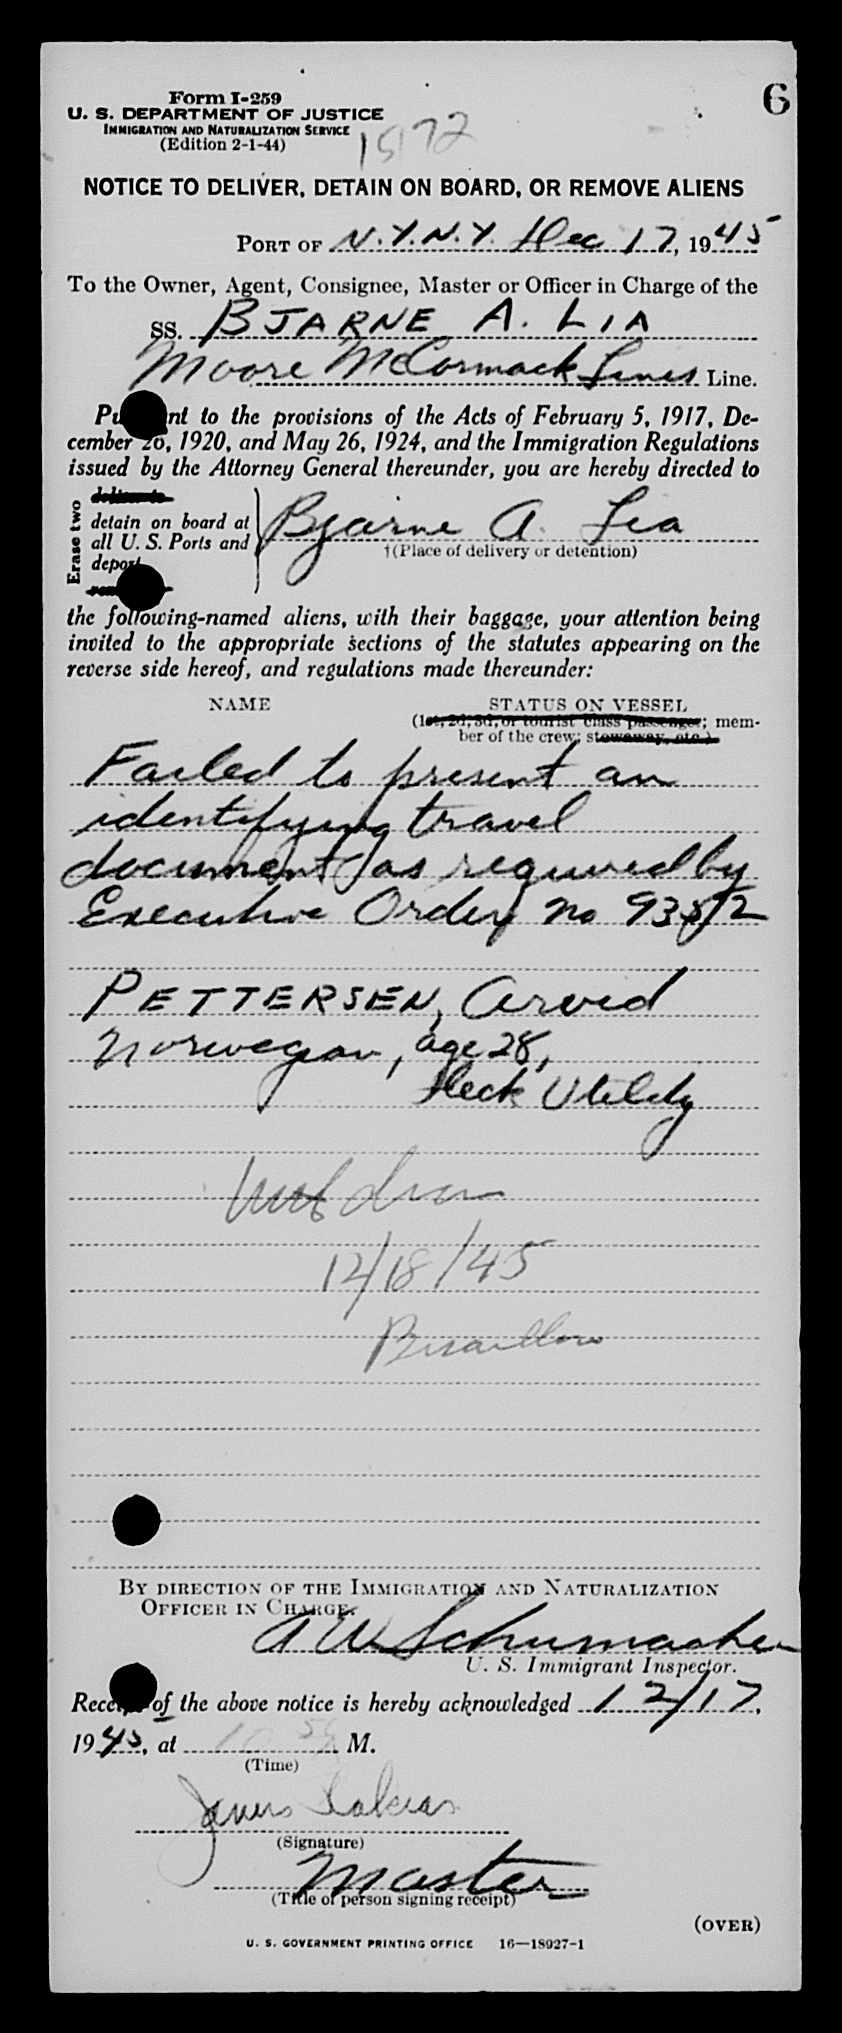 6
Form I-259
U. S. DEPARTMENT OF JUSTICE
IMMIGRATION AND NATURALIZATION SERVICE
(Edition 2-1-44)
1572
NOTICE TO DELIVER, DETAIN ON BOARD, OR REMOVE ALIENS
PORT OF N.Y.N.Y. Dec 17, 1945
To the Owner, Agent, Consignee, Master or Officer in Charge of the
SS. BJARNE A. LIA
Moore McCormack Lines Line.
Pu nt to the provisions of the Acts of February 5, 1917, De-
cember 26, 1920, and May 26, 1924, and the Immigration Regulations
issued by the Attorney General thereunder, you are hereby directed to
Erase two
deliver to
detain on board at
all U. S. Ports and
deport
Bjarne A. Lia
†(Place of delivery or detention)
the following-named aliens, with their baggage, your attention being
invited to the appropriate sections of the statutes appearing on the
reverse side hereof, and regulations made thereunder:
NAME STATUS ON VESSEL
(1st, 2d, 3d, or tourist class passenger; mem-
ber of the crew; stowaway, etc.)
Failed to present an
identifying travel
document as required by
Executive Order no 9352
PETTERSEN, Arvid
Norwegian, age 28,
Deck Utility
12/18/45
BY DIRECTION OF THE IMMIGRATION AND NATURALIZATION
OFFICER IN CHARGE.
A W Schumacher
U. S. Immigrant Inspector.
Receipt of the above notice is hereby acknowledged 12/17,
1945, at 10 M.
(Time)
(Signature)
Master
(Title of person signing receipt)
(OVER)
U. S. GOVERNMENT PRINTING OFFICE 16—18927-1